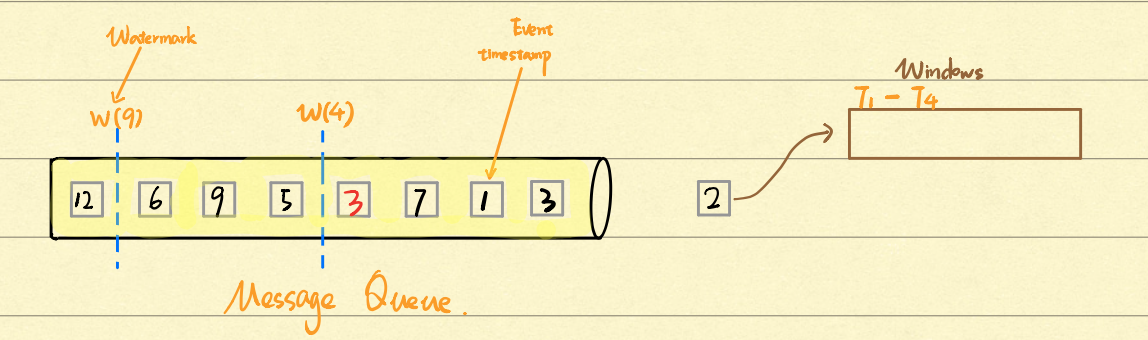 Watermark
Event
timestamp
Windows
T1 - T4
W(9)
W(4)
12 6 9 5 3 7 1 3 2
Message Queue.